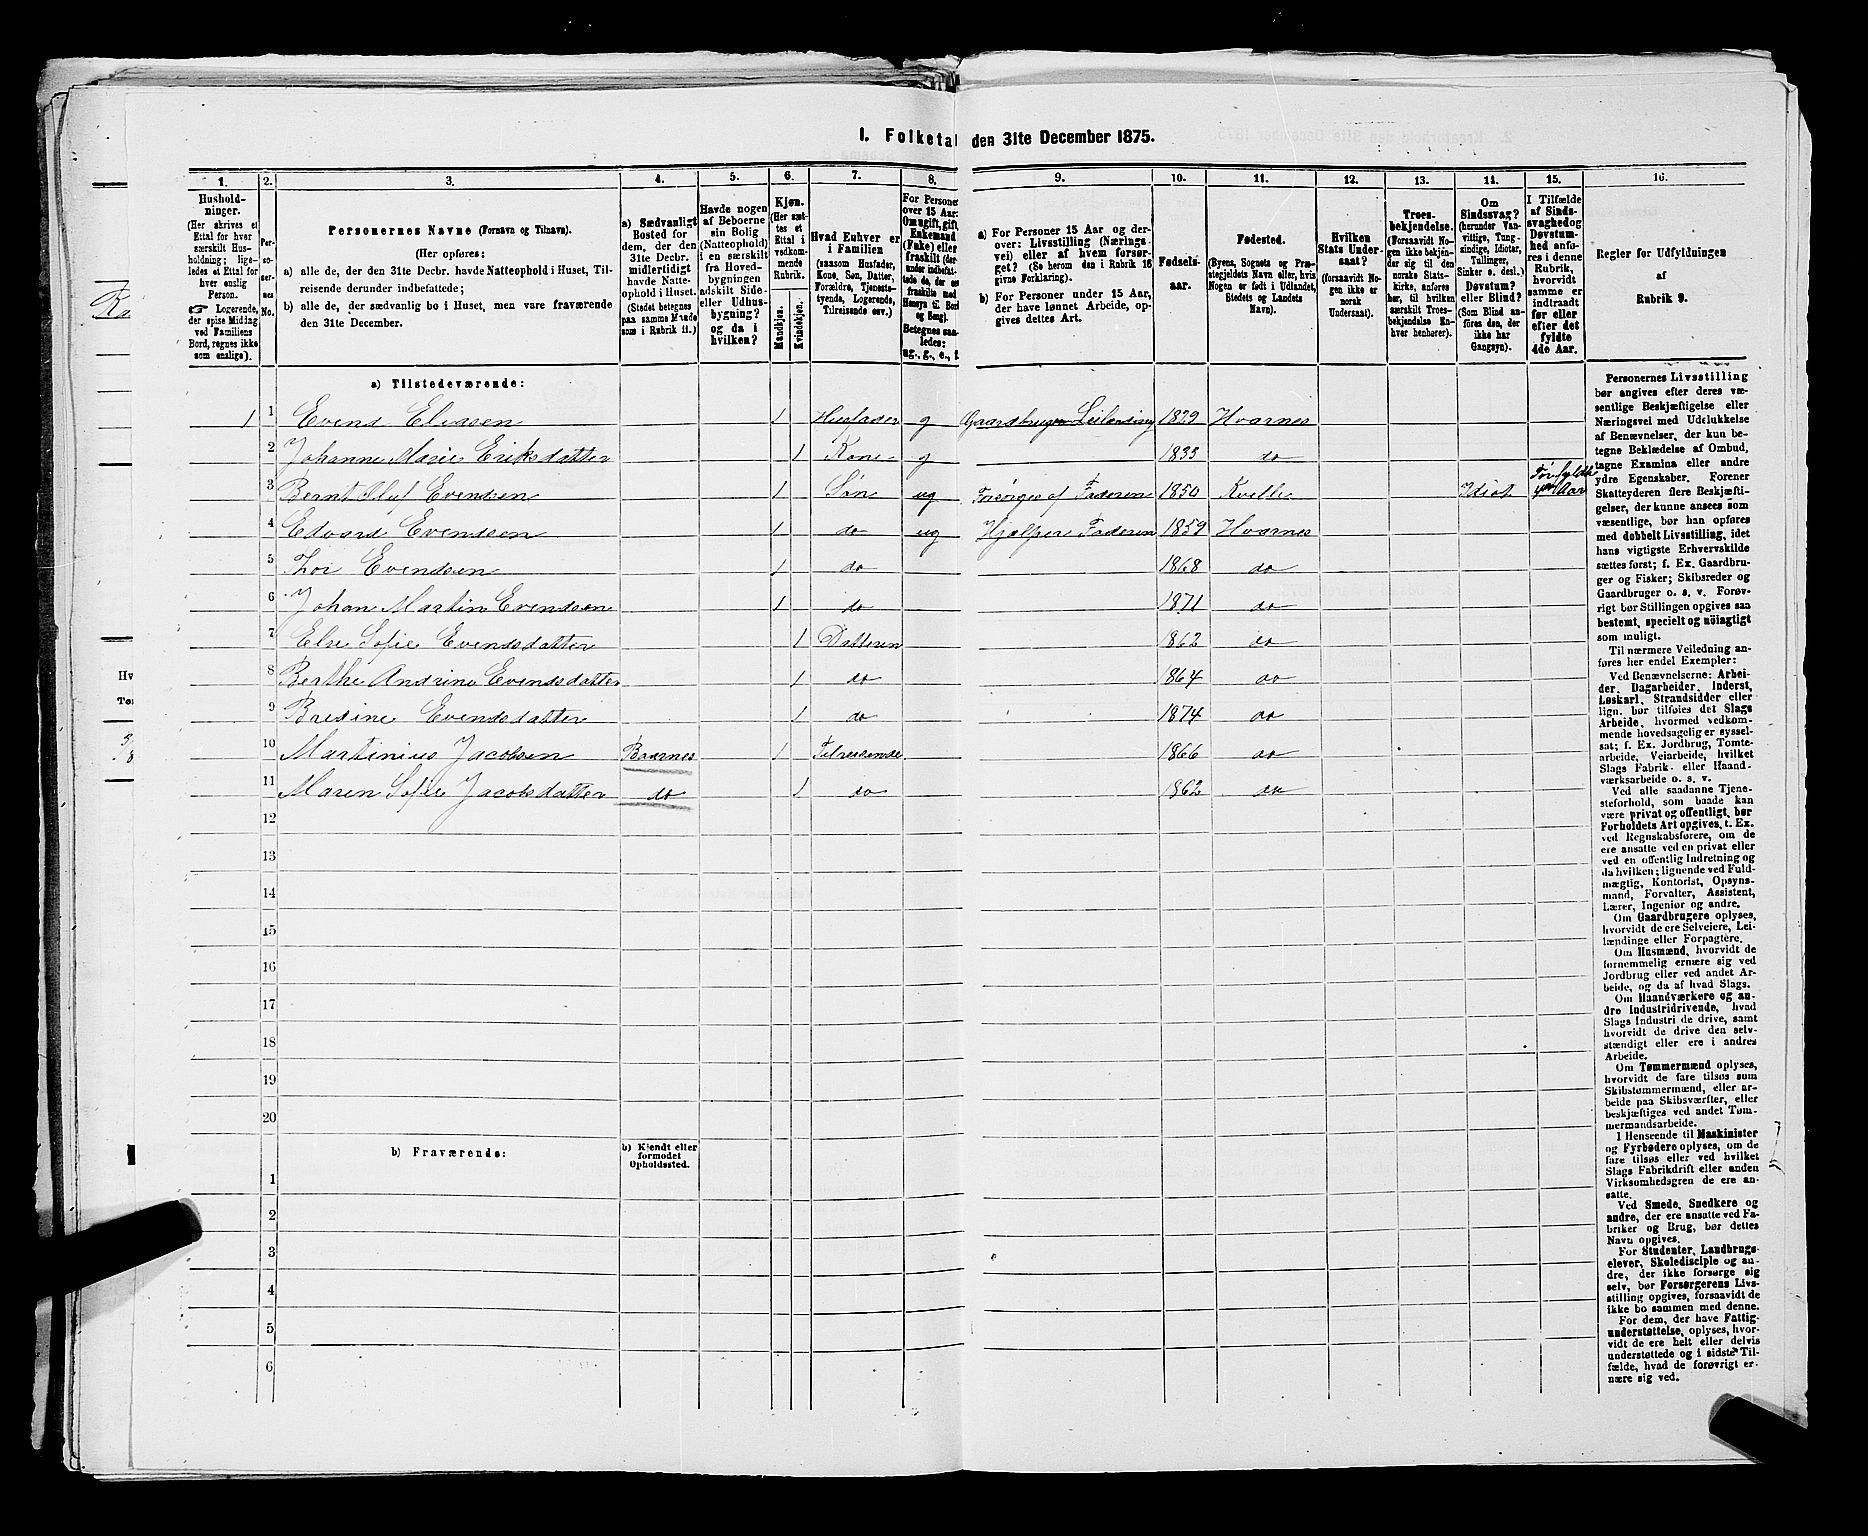 1. Folketal den 31te December 1875.
1. 2. 3. 4. 5. 6. 7. 8. 9. 10. 11. 12. 13. 14. 15. 16.
Hushold-
ninger.
(Her skrives et
Ettal for hver
særskilt Hus-
holdning; lige-
ledes et Ettal for
hver enslig
Person.
☞ Logerende,
der spise Middag
ved Familiens
Bord, regnes ikke
som enslige).
Per-
so-
ner-
nes
No.
Personernes Navne (Fornavn og Tilnavn).
(Her opføres:
a) alle de, der den 31te Decbr. havde Natteophold i Huset, Til-
reisende derunder indbefattede;
b) alle de, der sædvanlig bo i Huset, men vare fraværende
den 31te December.
a) Sædvanligt
Bosted for
dem, der den
31te Decbr.
midlertidigt
havde Natte-
ophold i Huset.
(Stedet betegnes
paa samme Maade
som i Rubrik 11.)
Havde nogen
af Beboerne
sin Bolig
(Natteophold)
i en særskilt
fra Hoved-
bygningen
adskilt Side-
eller Udhus-
bygning?
og da i
hvilken?
Kjøn.
(Her sæt-
tes et
Ettal i
vedkom-
mende
Rubrik.
Mandkjøn.
Kvindekjøn.
Hvad Enhver er
i Familien
(saasom Husfader,
Kone, Søn, Datter,
Forældre, Tjeneste-
tyende, Logerende,
Tilreisende osv.)
For Personer
over 15 Aar:
Om ugift, gift,
Enkemand
(Enke) eller
fraskilt (der-
under indbefat-
tede de, der ere
fraskilte med
Hensyn til Bord
og Seng).
Betegnes saa-
ledes:
ug., g., e., f.
a) For Personer 15 Aar og der-
over: Livsstilling (Nærings-
vei) eller af hvem forsør-
get? (Se herom den i Rubrik 16
givne Forklaring).
b) For Personer under 15 Aar,
der have lønnet Arbeide, op-
gives dettes Art.
Fødsels-
aar.
Fødested.
(Byens, Sognets og Præ-
stegjeldets Navn eller, hvis
Nogen er født i Udlandet,
Stedets og Landets
Navn).
Hvilken
Stats Under-
saat?
(forsaavidt No-
gen ikke er
norsk
Undersaat).
Troes-
bekjendelse.
(Forsaavidt No-
gen ikke bekjen-
der sig til den
norske Stats-
kirke, anføres
her, til hvilken
særskilt Troes-
bekjendelse En-
hver henhører).
Om
Sindssvag?
(herunder Van-
vittige, Tung-
sindige, Idioter,
Tullinger,
Sinker o. desl.)
Døvstum?
eller Blind?
(Som Blind an-
føres den, der
ikke har
Gangsyn).
I Tilfælde
af Sinds-
svaghed og
Døvstum-
hed anfø-
res i denne
Rubrik,
hvorvidt
samme er
indtraadt
før eller
efter det
fyldte
4de Aar.
Regler for Udfyldningen
af
Rubrik 9.
a) Tilstedeværende:
1 1 Evend Eliasen 1 Husfader g Gaardbruger Leilending 1829 Hvarnes
2 Johanne Marie Eriksdatter 1 Kone g 1833 do
3 Bernt Oluf Evendsen 1 Søn ug Forsørges af Faderen 1850 Kvelle Idiot Før fyldte 4de Aar
4 Edvard Evendsen 1 do ug Hjælper Faderen 1859 Hvarnes
5 Thor Evendsen 1 do 1868 do
6 Johan Martin Evendsen 1 do 1871 do
7 Else Sofie Evendsdatter 1 Datteren 1862 do
8 Berthe Andrine Evendsdatter 1 do 1864 do
9 Bredine Evendsdatter 1 do 1874 do
10 Martinius Jacobsen Baarnes 1 Tilreisende 1866 do
11 Maren Sofie Jacobsdatter do 1 do 1862 do
12
13
14
15
16
17
18
19
20
b) Fraværende:
b) Kjendt eller
formodet
Opholdssted.
1
2
3
4
5
6
Personernes Livsstilling
bør angives efter deres væ-
sentlige Beskjæftigelse eller
Næringsvei med Udelukkelse
af Benævnelser, der kun be-
tegne Beklædelse af Ombud,
tagne Examina eller andre
ydre Egenskaber. Forener
Skatteyderen flere Beskjæfti-
gelser, der kunne ansees som
væsentlige, bør han opføres
med dobbelt Livsstilling, idet
hans vigtigste Erhvervskilde
sættes først; f. Ex. Gaardbru-
ger og Fisker; Skibsreder og
Gaardbruger o. s. v. Forøv-
rigt bør Stillingen opgives saa
bestemt, specielt og nöiagtigt
som muligt.
Til nærmere Veiledning an-
føres her endel Exempler:
Ved Benævnelserne: Arbei-
der, Dagarbeider, Inderst,
Løskarl, Strandsidder eller
lign. bør tilføies det Slags
Arbeide, hvormed vedkom-
mende hovedsagelig er syssel-
sat; f. Ex. Jordbrug, Tomte-
arbeide, Veiarbeide, hvilket
Slags Fabrik- eller Haand-
værksarbeide o. s. v.
Ved alle saadanne Tjene-
steforhold, som baade kan
være privat og offentligt, bør
Forholdets Art opgives, t. Ex.
ved Regnskabsførere, om de
ere ansatte ved en privat eller
ved en offentlig Indretning og
da hvilken; lignende ved Fuld-
mægtig, Kontorist, Opsyns-
mand, Forvalter, Assistent,
Lærer, Ingeniør og andre.
Om Gaardbrugere oplyses,
hvorvidt de ere Selveiere, Lei-
lændinge eller Forpagtere.
Om Husmænd, hvorvidt de
fornemmelig ernære sig ved
Jordbrug eller ved andet Ar-
beide, og da af hvad Slags.
Om Haandværkere og an-
dre Industridrivende, hvad
Slags Industri de drive, samt
hvorvidt de drive den selv-
stændigt eller ere i andres
Arbeide.
Om Tømmermænd oplyses,
hvorvidt de fare tilsøs som
Skibstømmermænd, eller ar-
beide paa Skibsværfter, eller
beskjæftiges ved andet Tøm-
mermandsarbeide.
I Henseende til Maskinister
og Fyrbødere oplyses, om de
fare tilsøs eller ved hvilket
Slags Fabrikdrift eller anden
Virksomhedsgren de ere an-
satte.
Ved Smede, Snedkere og
andre, der ere ansatte ved Fa-
briker og Brug, bør dettes
Navn opgives.
For Studenter, Landbrugs-
elever, Skoledisciple og an-
dre, der ikke forsørge sig
selv, bør Forsørgerens Livs-
stilling opgives, forsaavidt de
ikke bo sammen med denne.
For dem, der have Fattig-
understøttelse, oplyses, hvor-
vidt de ere helt eller delvis
understøttede og i sidste Til-
fælde, hvad de forøvrigt er-
nære sig ved.